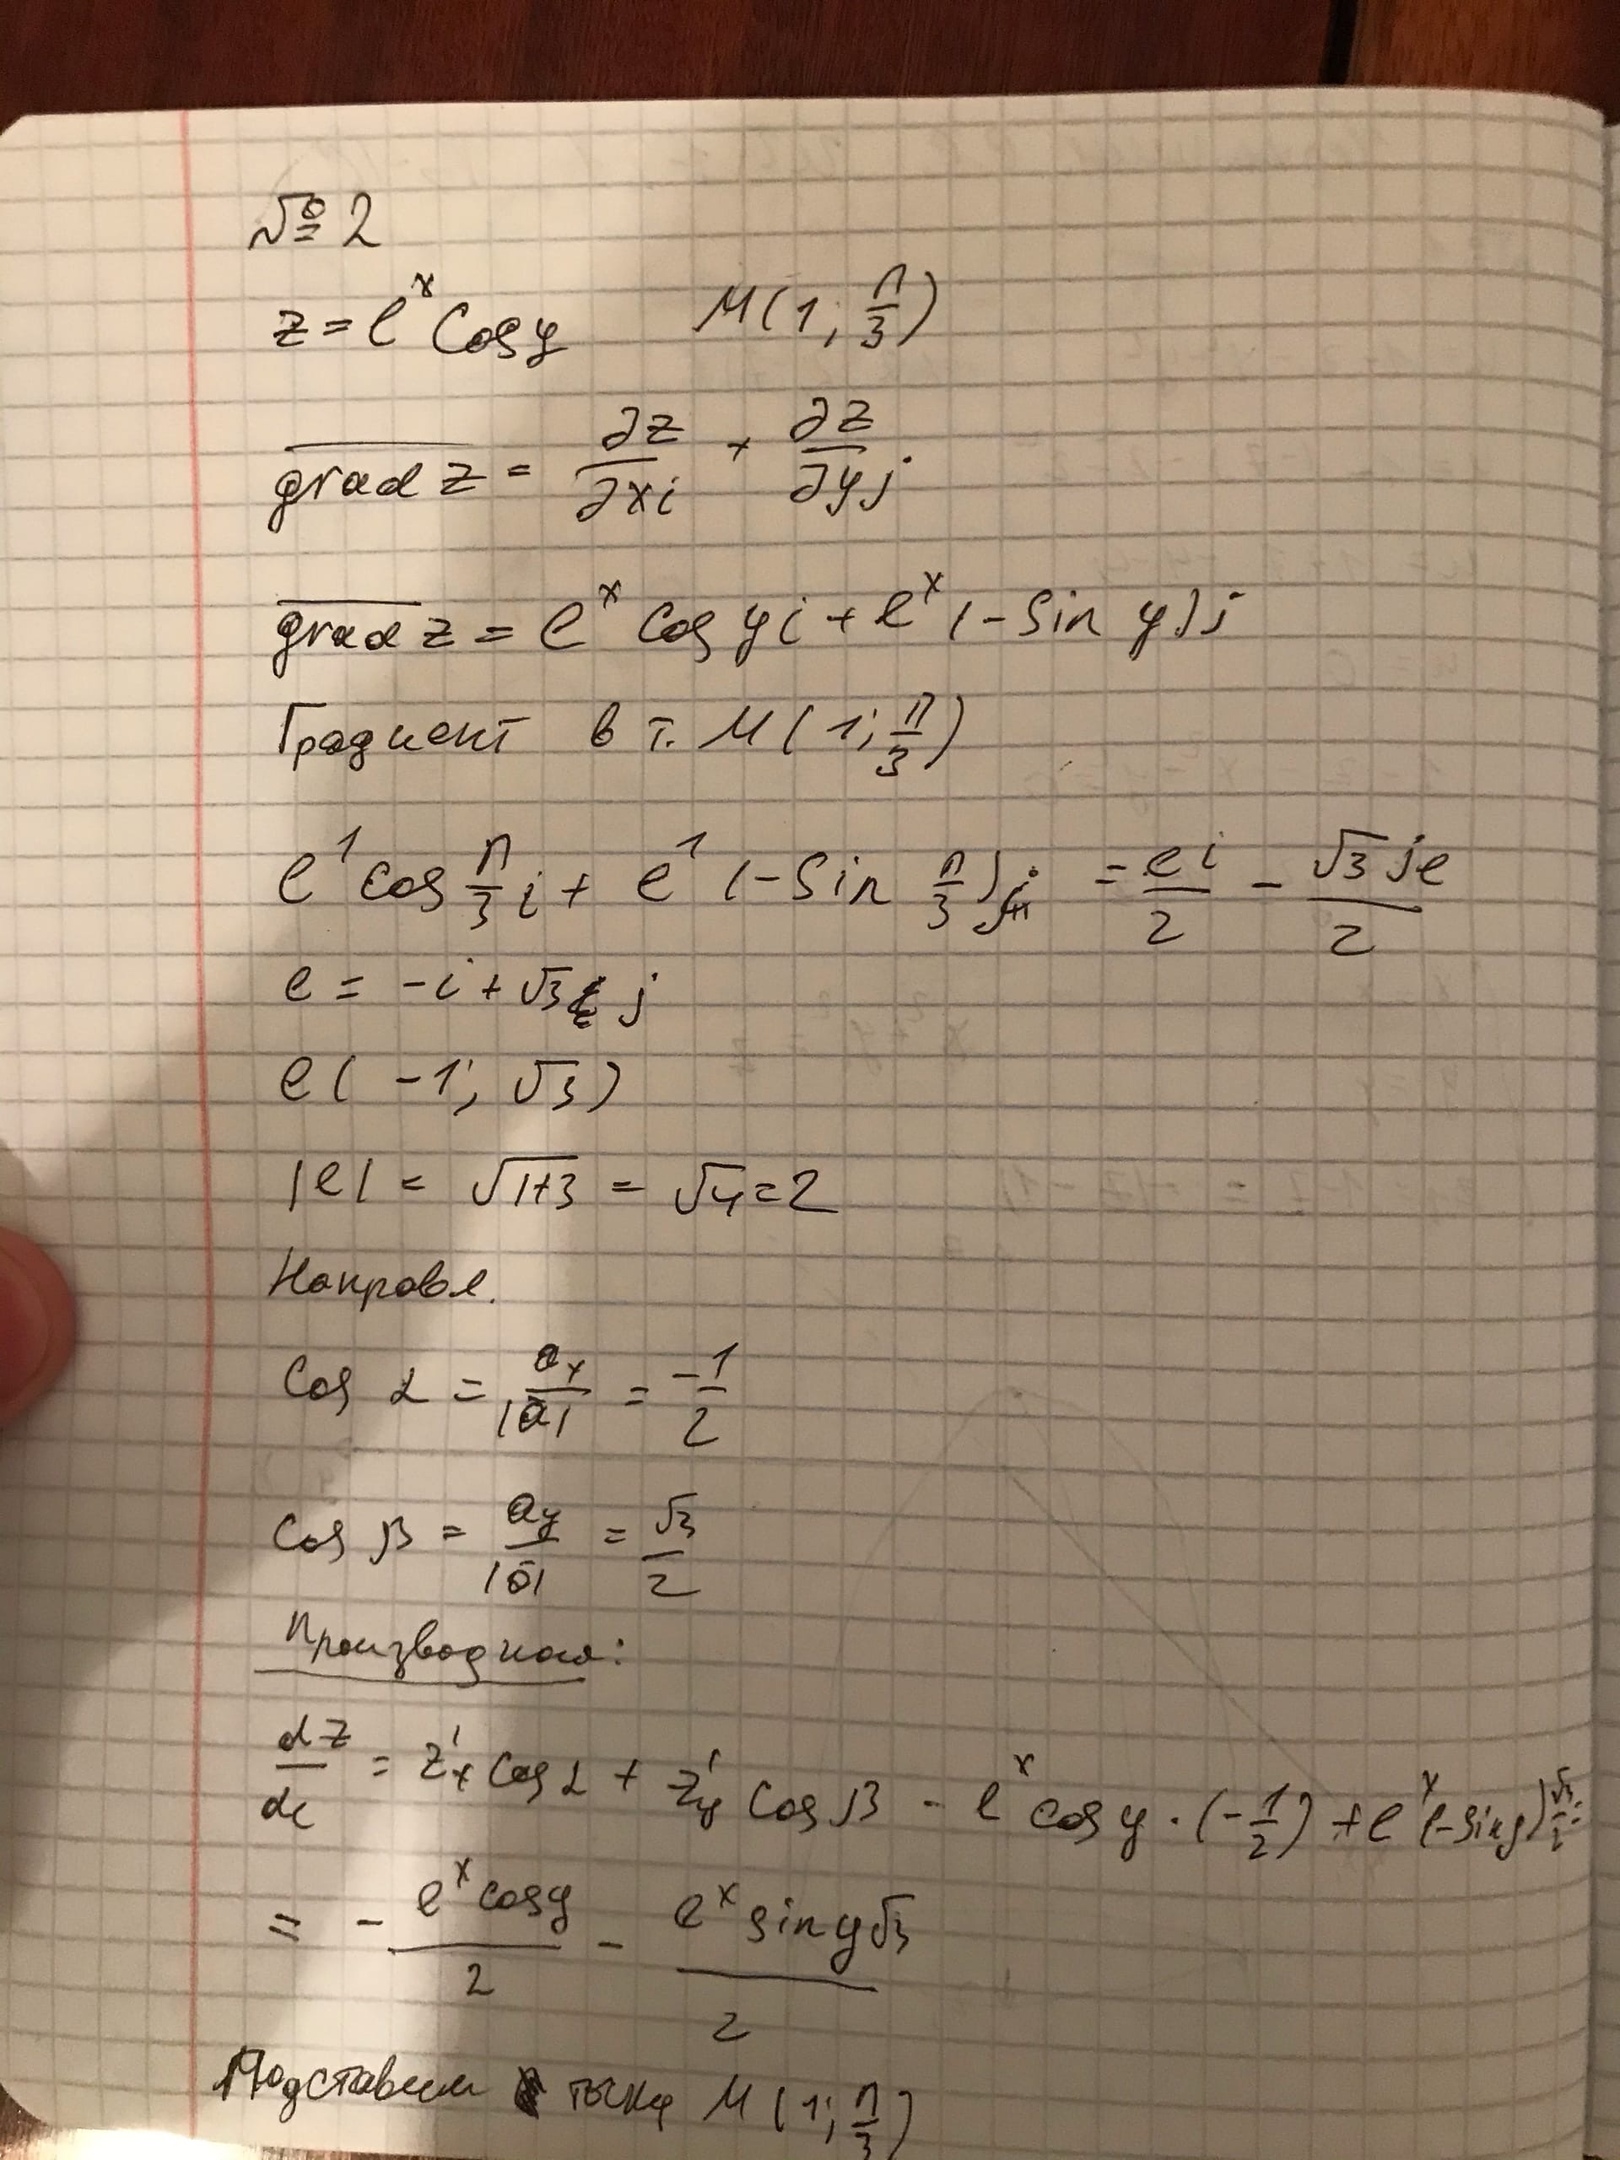 № 2
z = e^x cos y M(1; π/3)
grad z = ∂z/∂xi + ∂z/∂yj
grad z = e^x cos yi + e^x (-sin y)j
Градиент в т. M(1; π/3)
e^1 cos π/3 i + e^1 (-sin π/3)j = ei/2 - √3je/2
e = -i + √3 j
e(-1; √3)
|e| = √1+3 = √4 = 2
Направл.
cos α = ax/|a| = -1/2
cos β = ay/|a| = √3/2
Производная:
dz/de = z'x cos α + z'y cos β - e^x cos y · (-1/2) + e^x (-sin y) √3/2 =
= - e^x cos y/2 - e^x sin y√3/2
Подставим точку M(1; π/3)